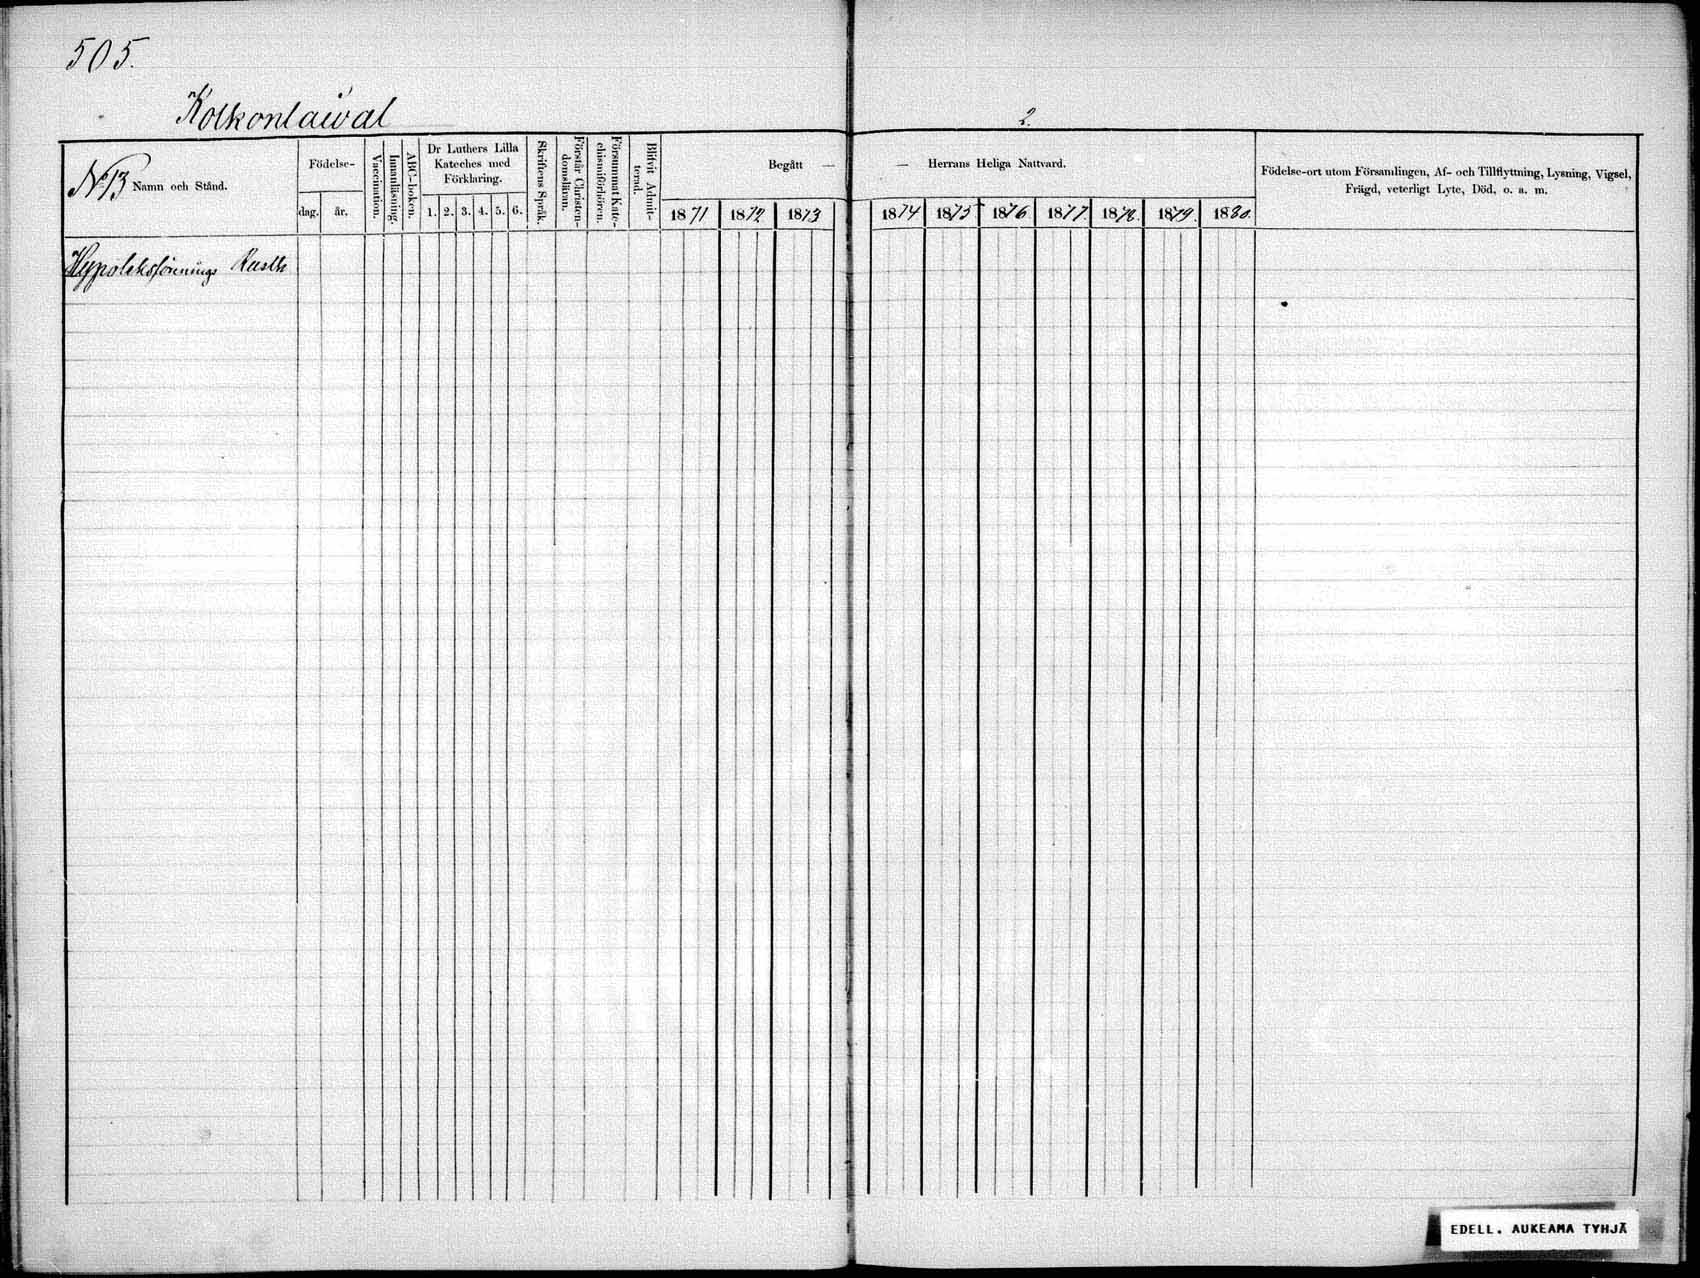 505.
Kolkontaival
2.
No 13 Namn och Stånd.
Födelse-
dag. år.
Vaccination.
Innanläsning.
ABC-boken.
Dr Luthers Lilla
Kateches med
Förklaring.
1. 2. 3. 4. 5. 6.
Skriftens Språk.
Förstår Christen-
domslänn.
Försummat Kate-
chismiförhören.
Blifvit Admit-
terad.
Begått —
1871 1872 1873
— Herrans Heliga Nattvard.
1874 1875 1876 1877 1878. 1879. 1880.
Födelse-ort utom Församlingen, Af- och Tillflyttning, Lysning, Vigsel,
Frägd, veterligt Lyte, Död, o. a. m.
Hypoteksförenings Rusth
EDELL. AUKEAMA TYHJÄ